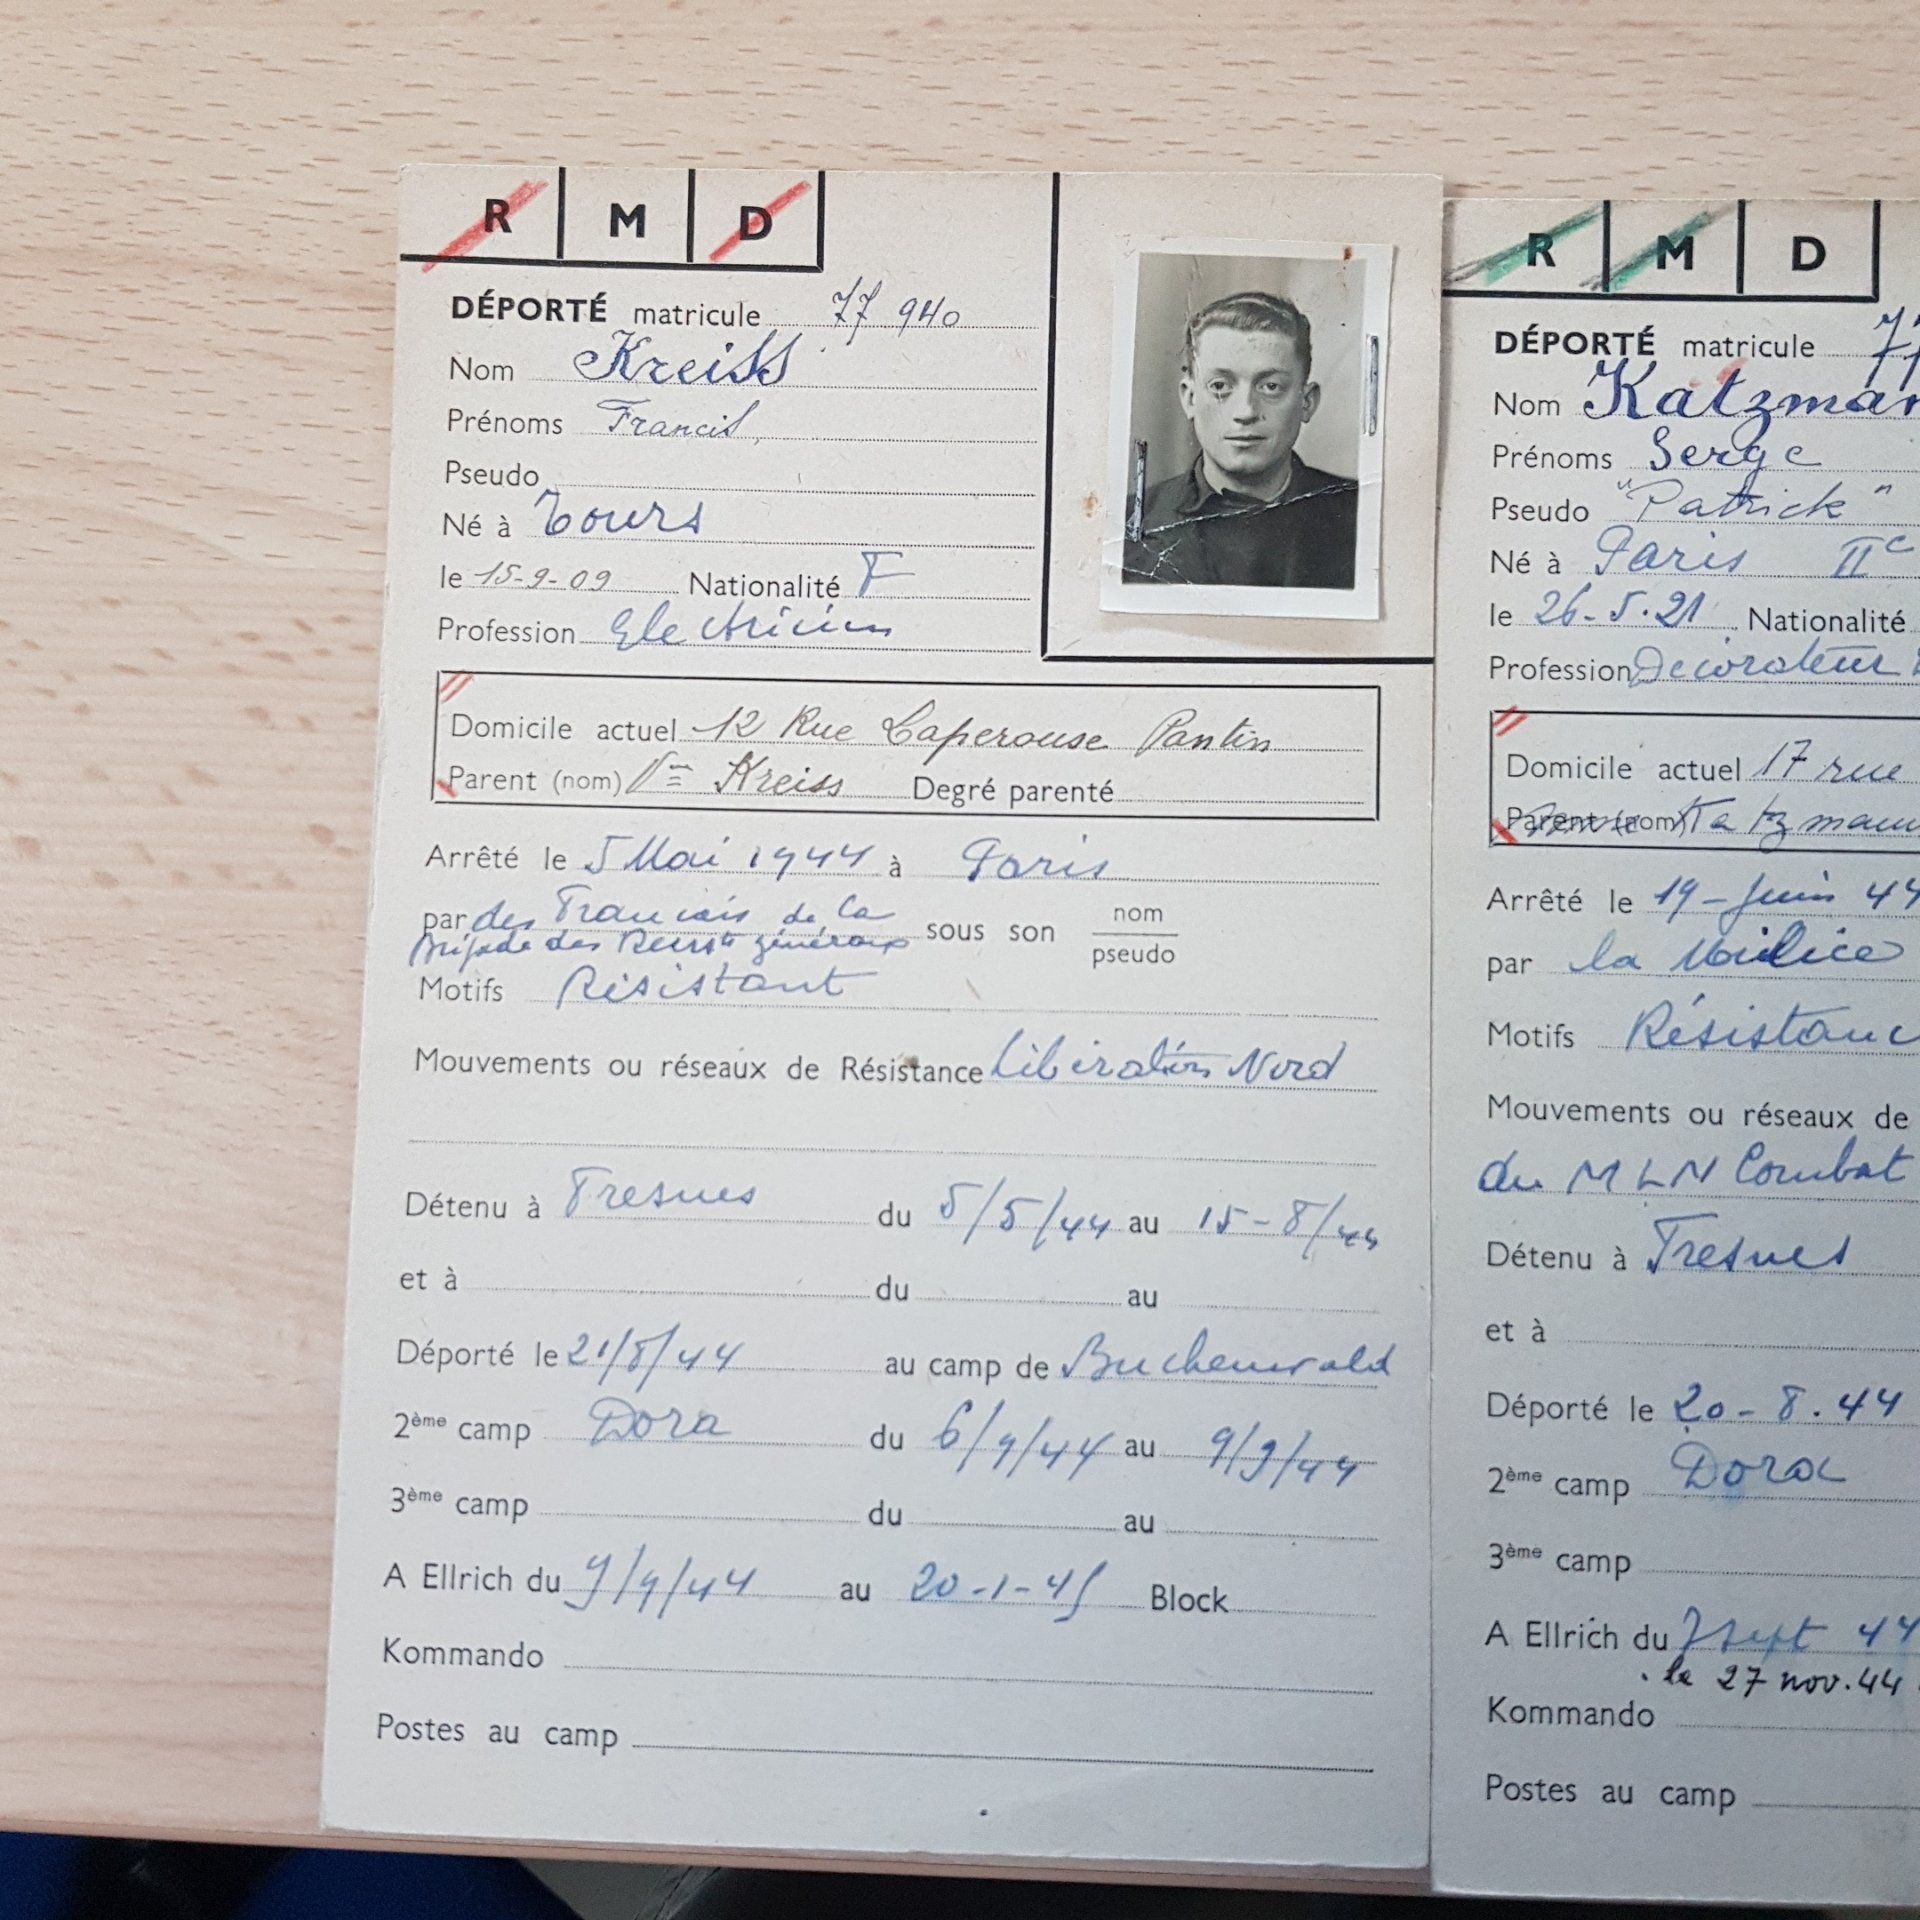 R M D
DÉPORTÉ matricule 77 940
Nom Kreiss
Prénoms Francis
Pseudo
Né à Tours
le 15-9-09 Nationalité F
Profession Electricien
Domicile actuel 12 Rue Laperouse Pantin
Parent (nom) Vve Kreiss Degré parenté
Arrêté le 5 Mai 1944 à Paris
par des Francais de la sous son nom
Brigade des Renseigts généraux pseudo
Motifs Résistant
Mouvements ou réseaux de Résistance Libération Nord
Détenu à Fresnes du 5/5/44 au 15-8/44
et à du au
Déporté le 21/8/44 au camp de Buchenwald
2ème camp Dora du 6/9/44 au 9/9/44
3ème camp du au
A Ellrich du 9/9/44 au 20-1-45 Block
Kommando
Postes au camp
R M D
DÉPORTÉ matricule 77
Nom Katzman
Prénoms Serge
Pseudo "Patrick"
Né à Paris IIe
le 26-5-21 Nationalité
Profession Décorateur
Domicile actuel 17 rue
Parent (nom) Katzmann
Arrêté le 19-Juin 44
par la Milice
Motifs Résistanc
Mouvements ou réseaux de
du MLN Combat
Détenu à Fresnes
et à
Déporté le 20-8.44
2ème camp Dora
3ème camp
A Ellrich du 7 sept 44
le 27 nov. 44
Kommando
Postes au camp